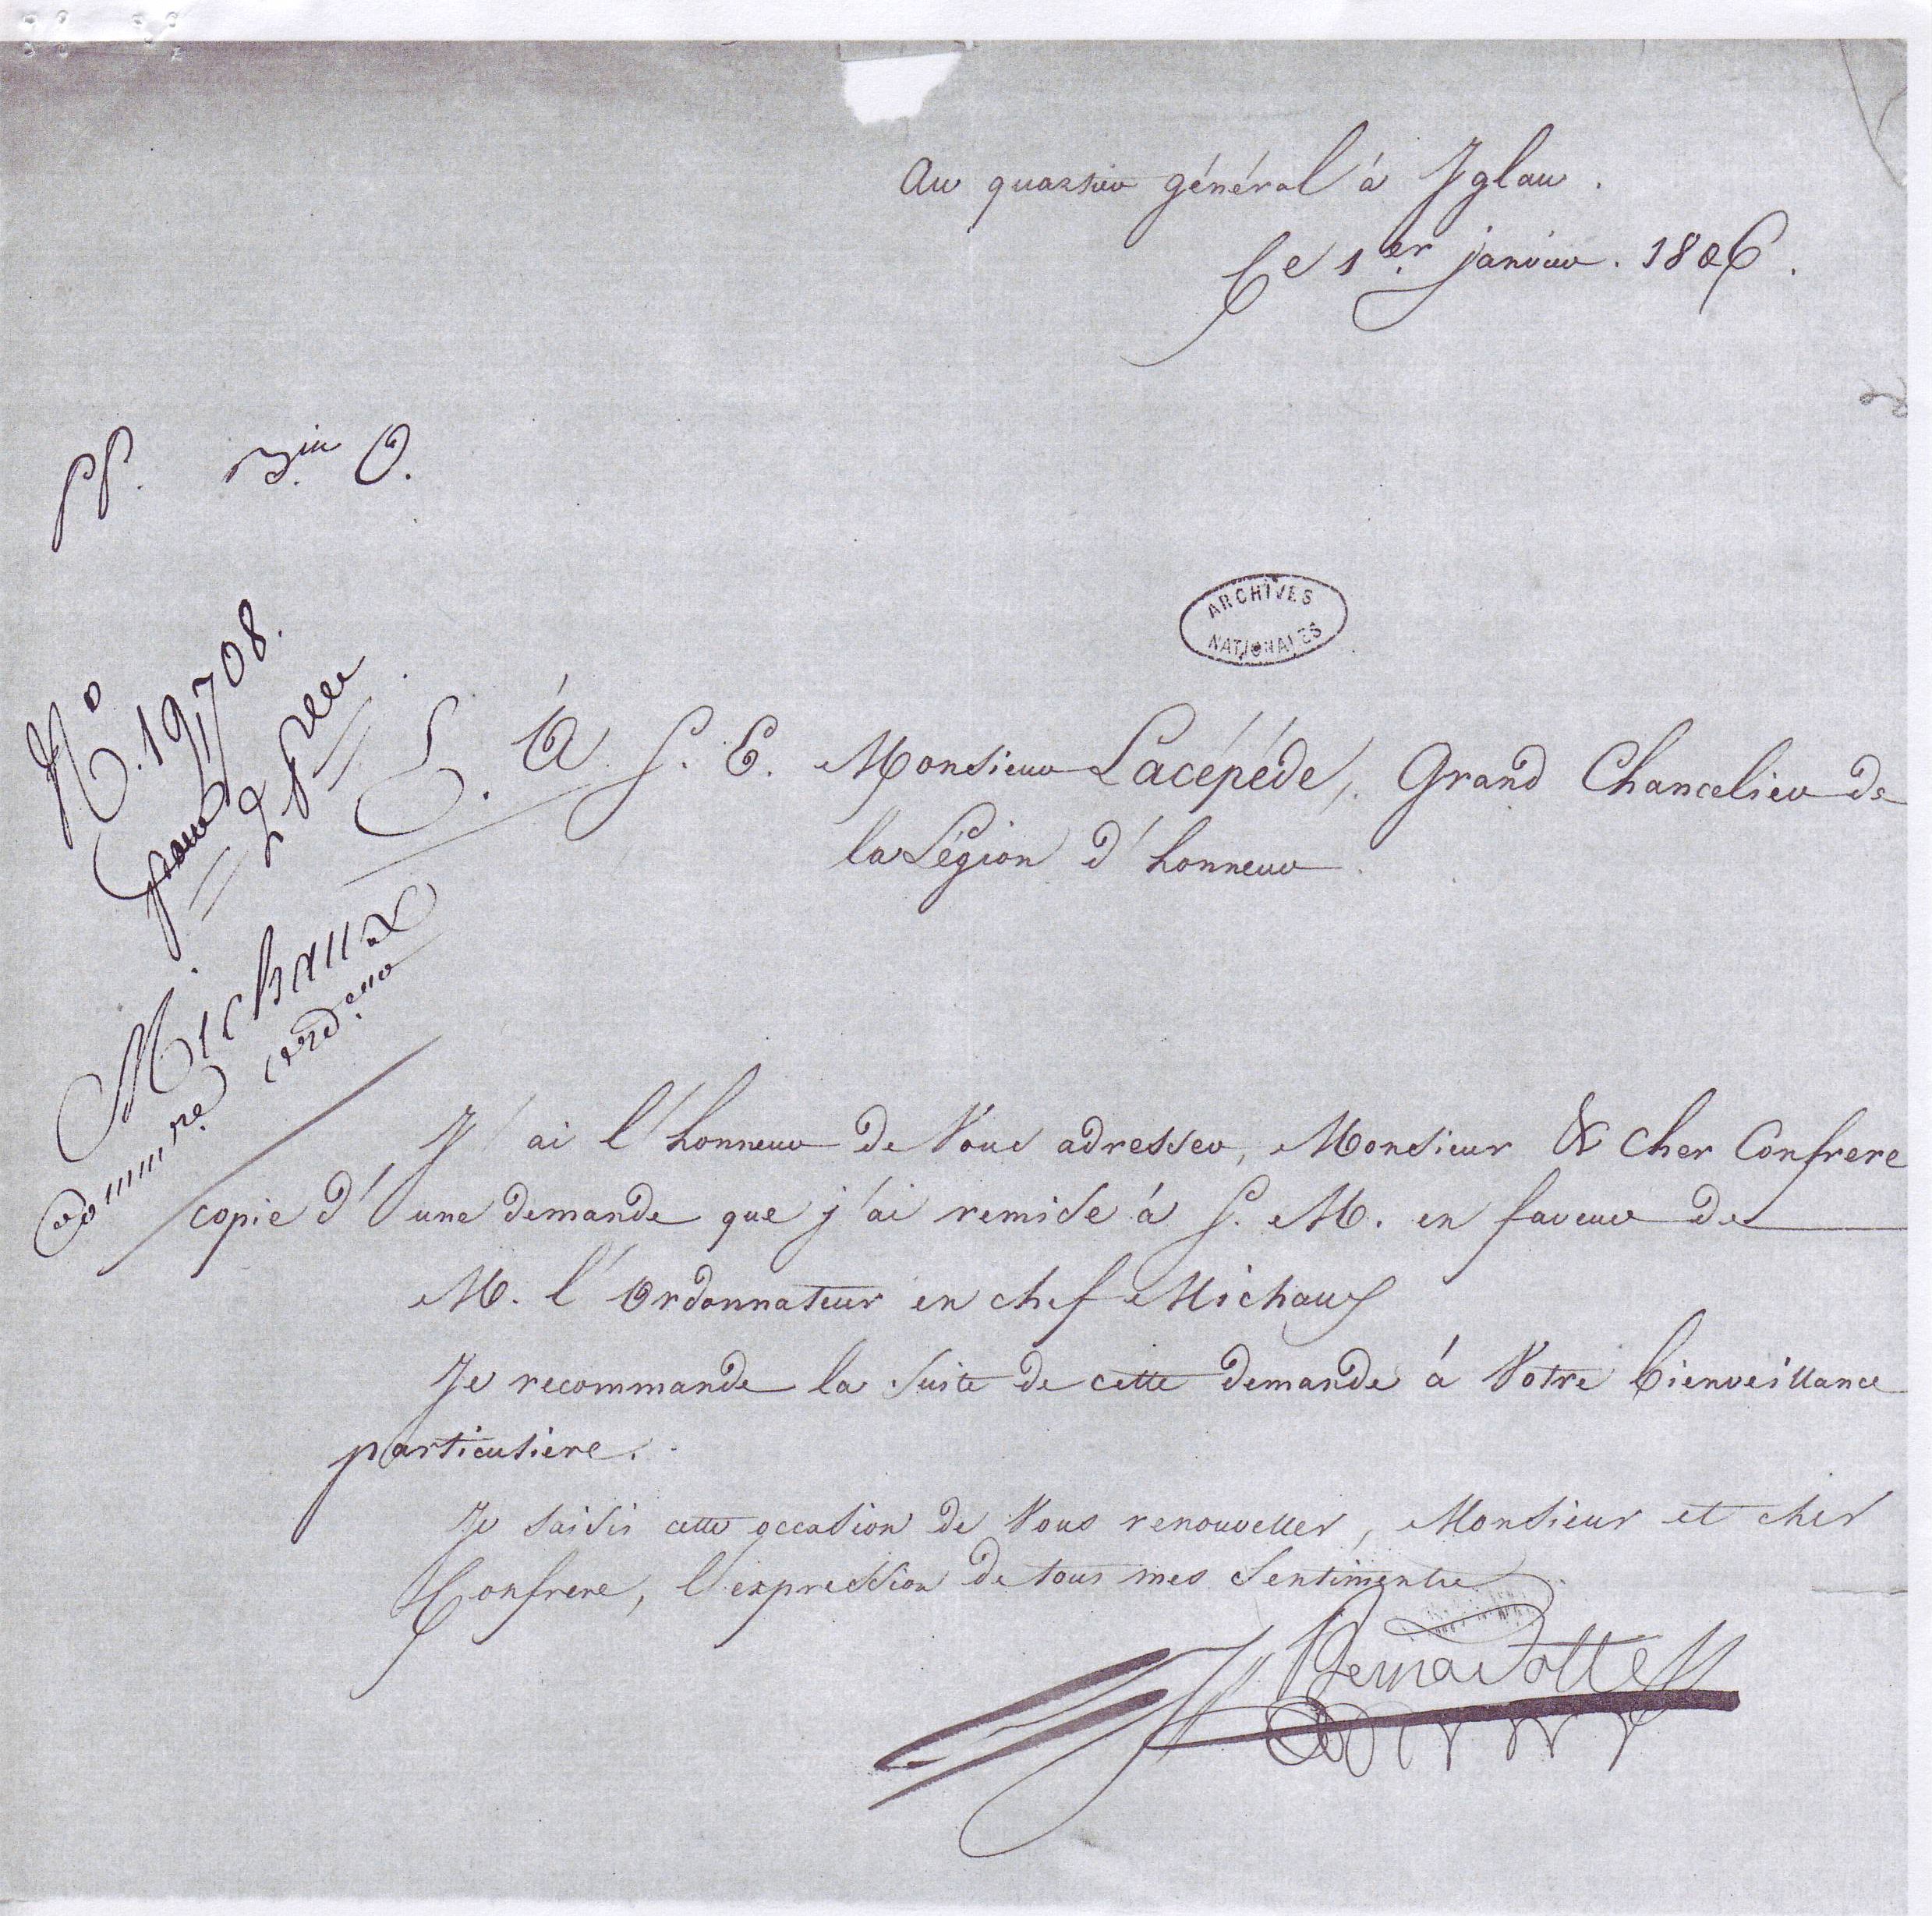 Au quartier général à Iglau.
Ce 1er janvier. 1806.
PP. O.
ARCHIVES
NATIONALES
No. 19708.
À S. E. Monsieur Lacépéde, Grand Chancelier de
la Légion d'honneur.
Michaux
Commre. ordeur
J'ai l'honneur de Vous adresser, Monsieur & Cher Confrere
copie d'une demande que j'ai remise à S. M. en faveur de
M. l'Ordonnateur en chef Michaux
Je recommande la suite de cette demande à Votre bienveillance
particuliere.
Je saisis cette occasion de Vous renouveller, Monsieur et cher
Confrere, l'expression de tous mes Sentimens
Bernadotte